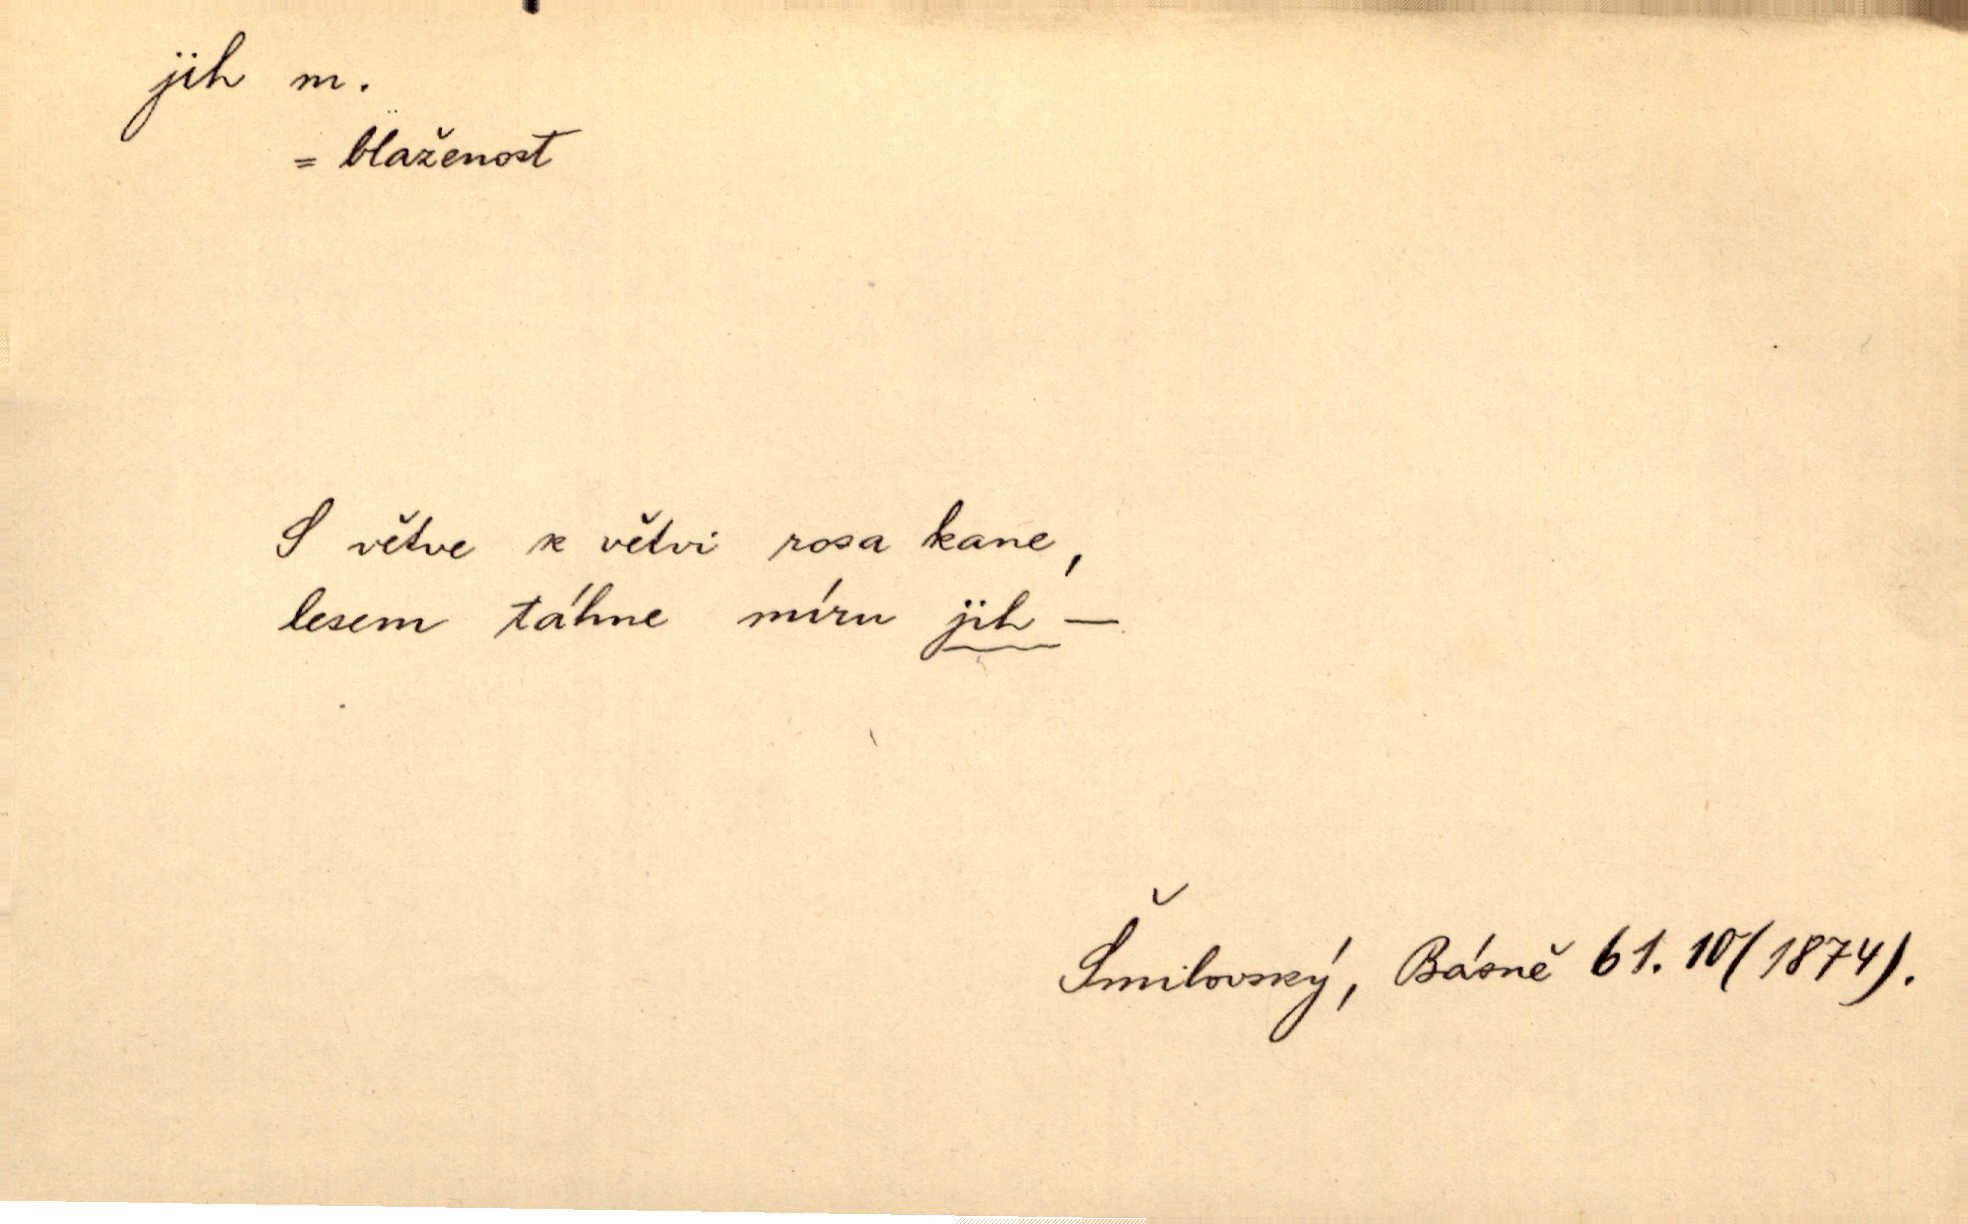 jih m.
= blaženost
S větve k větvi rosa kane,
lesem táhne míru jih —
Šmilovský, Básně 61. 10 (1874).